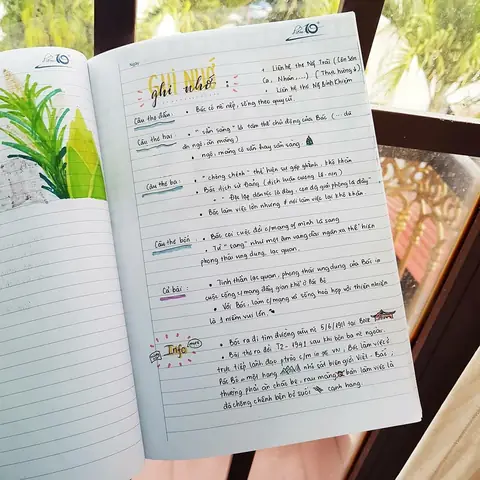 Ngày:
GHI NHỚ
ghi nhớ :
• Liên hệ thơ Ng Trãi (Côn Sơn
Ca, Nhàn,...)
• Liên hệ thơ Ng Bỉnh Khiêm
Câu thơ đầu:
• Bác có nề nếp, sống theo quy củ.
Câu thơ hai:
• "vẫn sẵn sàng" là tâm thế chủ động của Bác (... dù
ăn ngô, ăn măng)
• ngô, măng có vẫn hay sẵn sàng.
Câu thơ ba:
• "chông chênh" thể hiện sự gập ghềnh, khó khăn
• Bác dịch sử Đảng (dịch luận cương Lê-nin)
• Bác làm việc lớn nhưng nơi làm việc lại khó khăn.
Câu thơ bốn:
• Bác coi cuộc đời c/mạng of mình là sang
• Từ "sang" như một âm vang được ngân xa thể hiện
phong thái ung dung, lạc quan.
Cả bài:
• Tinh thần lạc quan, phong thái ung dung của Bác in
cuộc sống c/mạng đầy gian khổ ở Pác Bó
• Với Bác, làm c/mạng và sống hoà hợp với thiên nhiên
là 1 niềm vui lớn.
Info
• Bác ra đi tìm đường cứu nc 5/6/1911 tại Bến
• Bài thơ ra đời T2-1941 sau khi bôn ba nc ngoài.
trực tiếp lãnh đạo ptrào c/m in VN, Bác làm việc ở
Pác Bó in một hang nhỏ sát biên giới Việt - Bắc;
thường phải ăn cháo bẹ, rau măng, bàn làm việc là
đá chông chênh bên bờ suối cạnh hang.